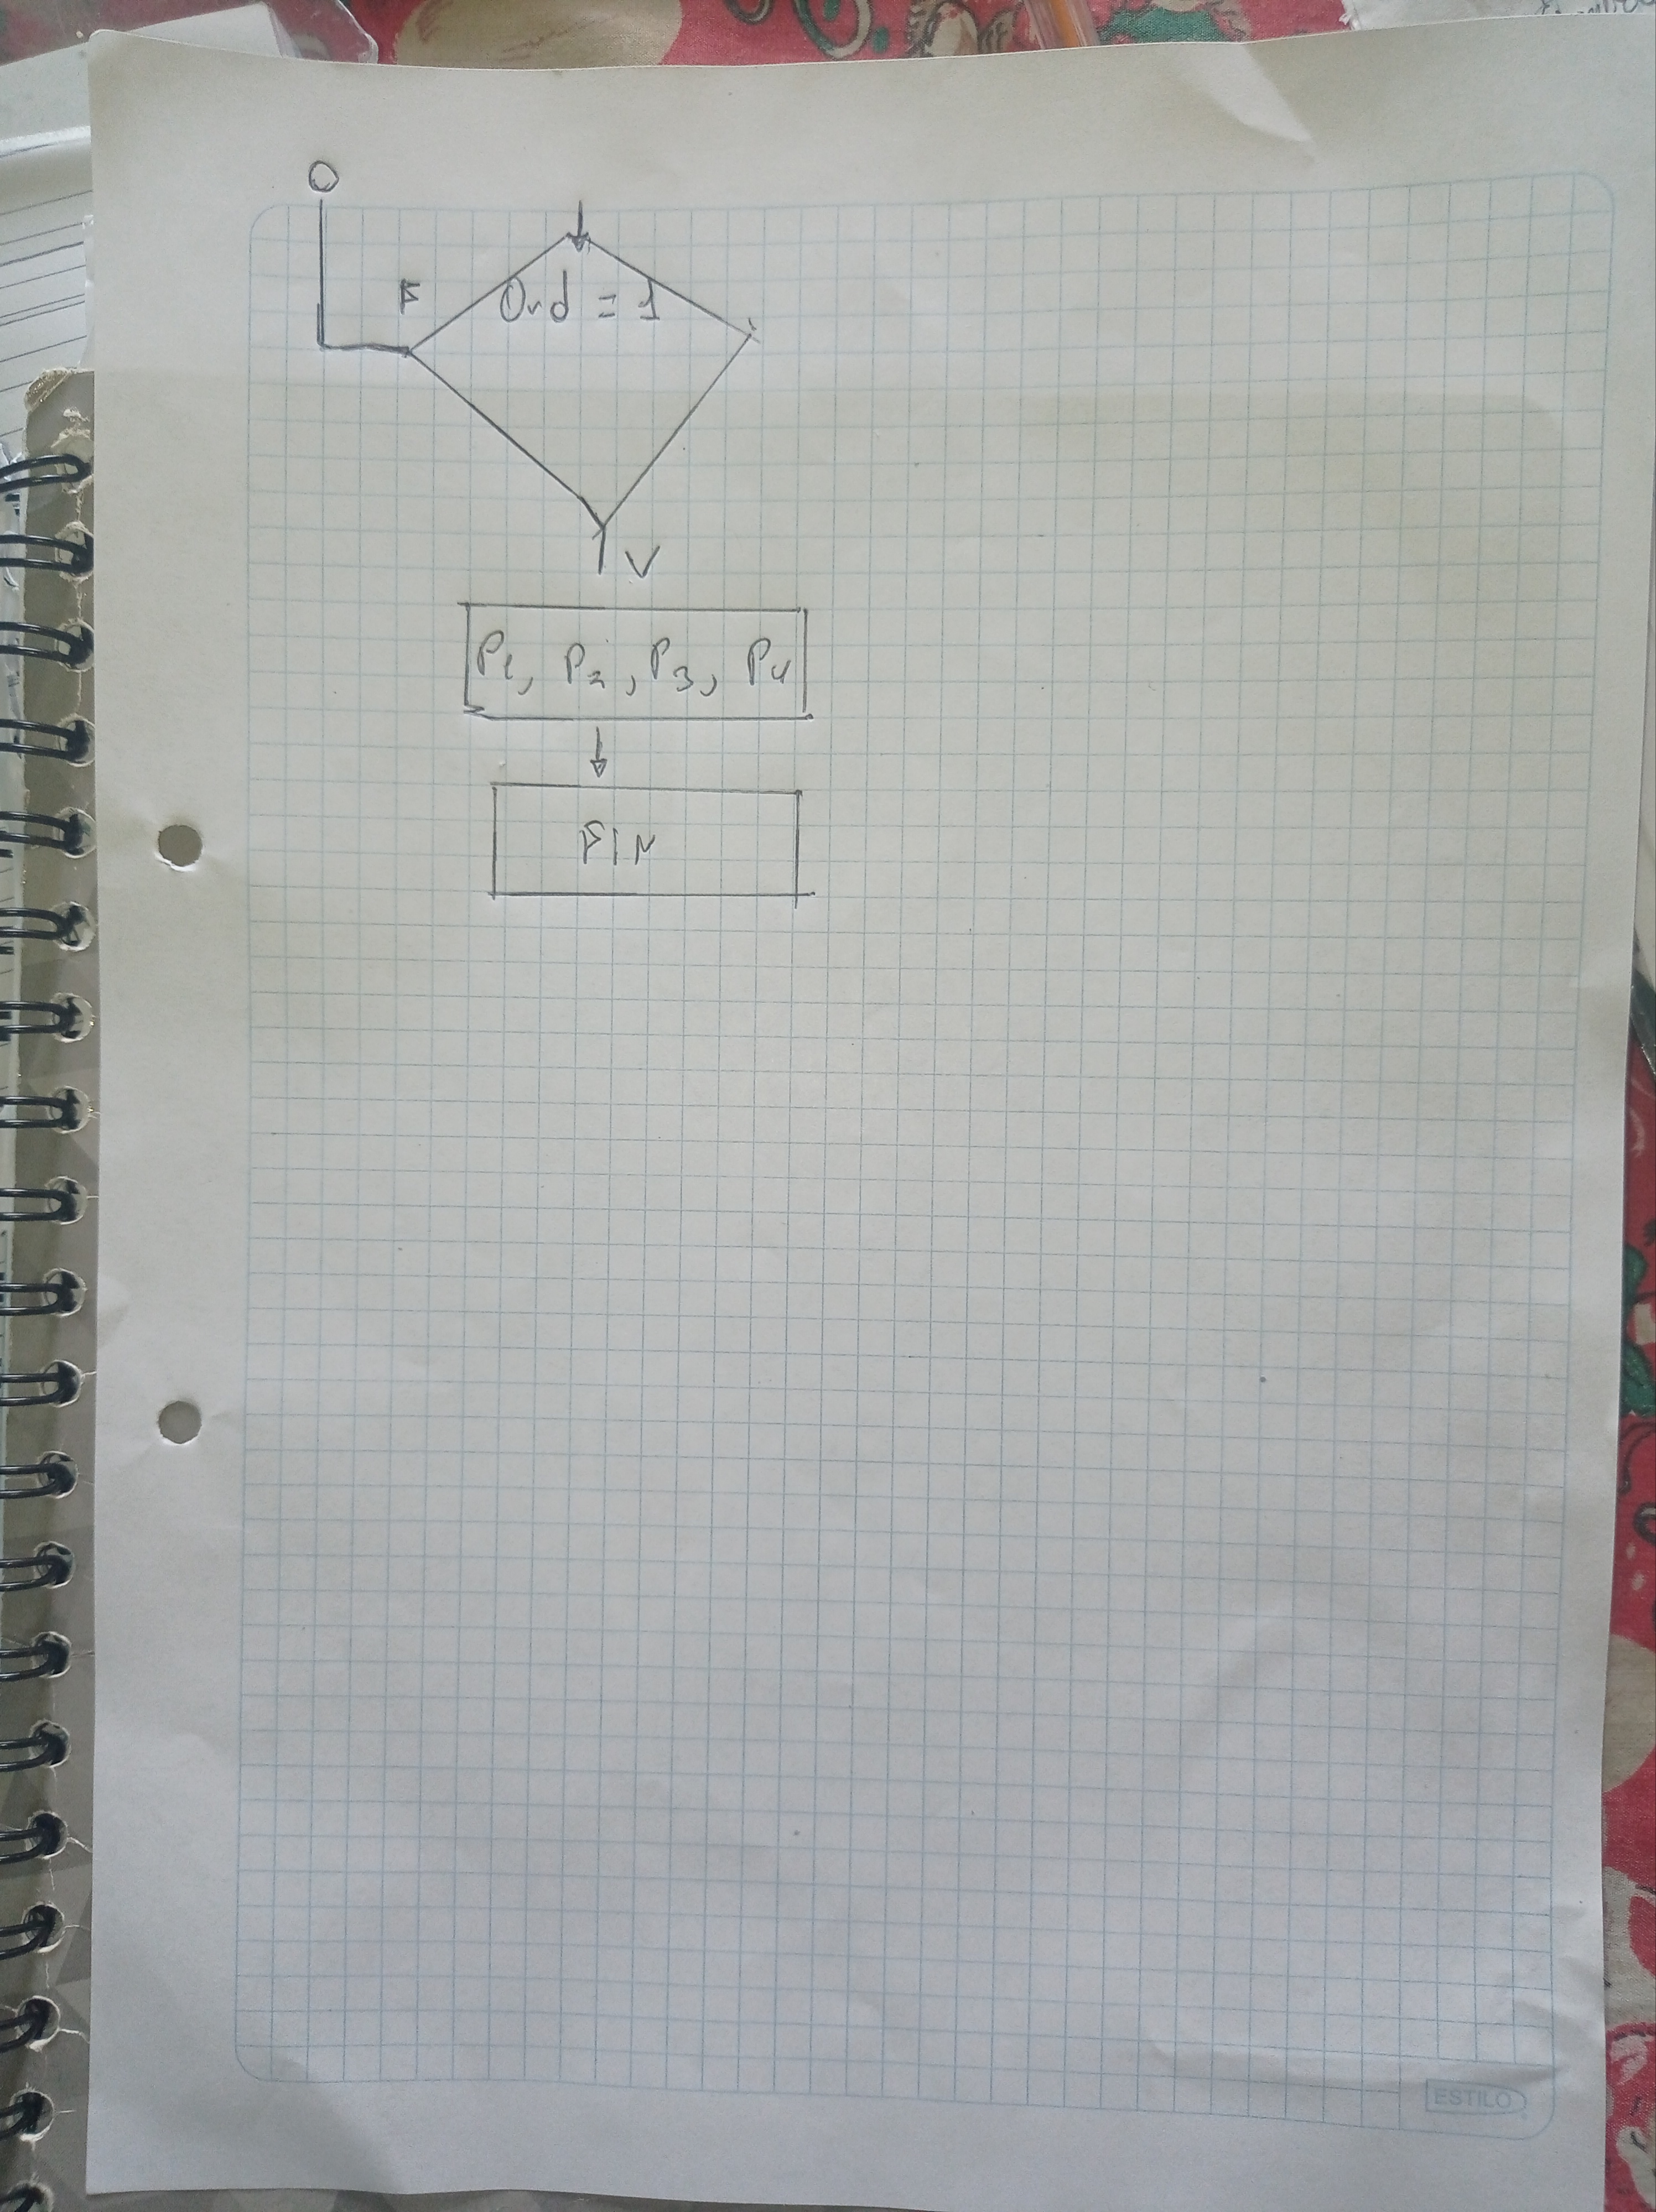 O
F
Ord = 1
V
P1, P2, P3, P4
FIN
ESTILO